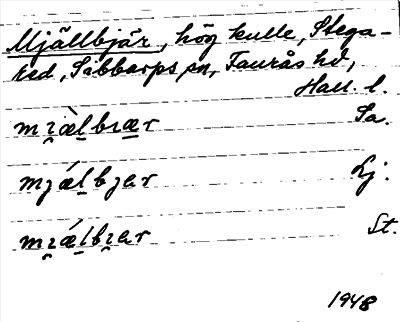 Mjällbjär, hög kulle, Stega-
red, Sibbarps sn, Faurås hd,
Hall. l.
mɪ̯æ̀l̠bɪæ̠r Sa.
mȷǽl̠bȷær Lj.
mɪ̯ǽl̠bɪ̯ær St.
1948